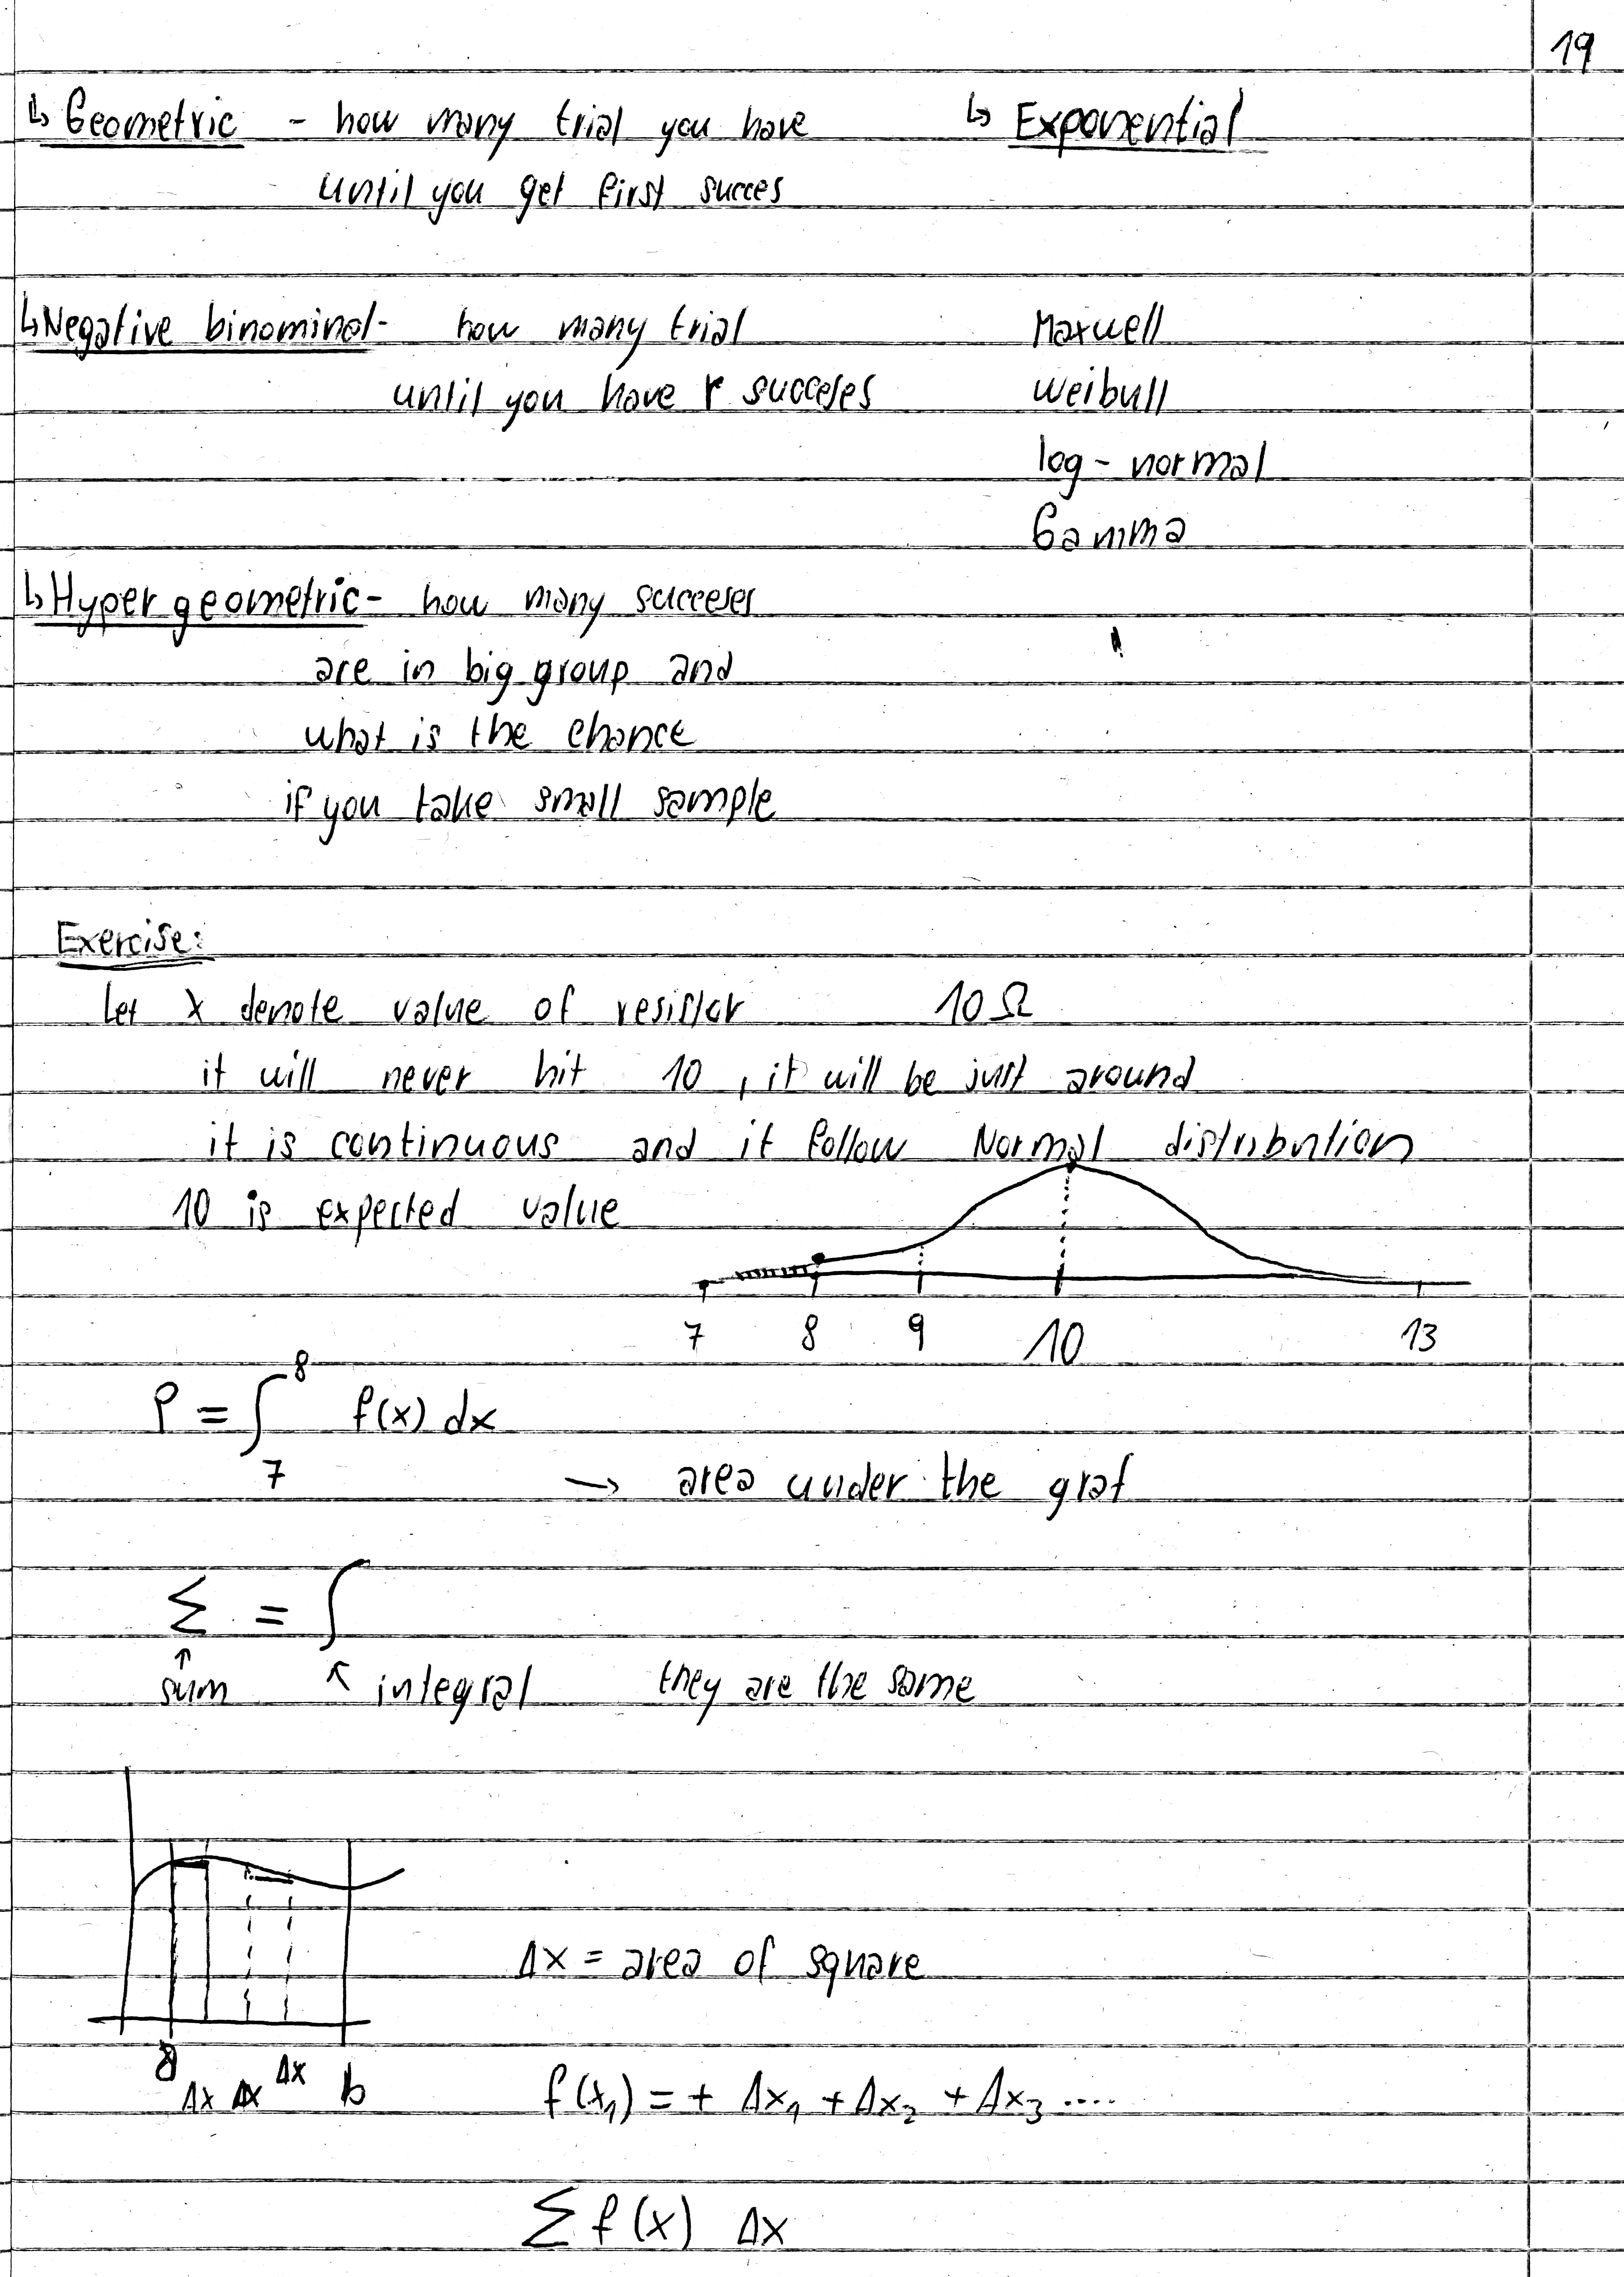 19
↳ Geometric - how many trial you have ↳ Exponential
until you get first succes
↳ Negative binominal - how many trial Maxwell
until you have r succeses Weibull
log - normal
Gamma
↳ Hyper geometric - how many succeses
are in big group and
what is the chance
if you take small sample
Exercise:
Let X denote value of resistor 10 Ω
it will never hit 10 , it will be just around
it is continuous and it follow Normal distribution
10 is expected value
7 8 9 10 13
P = ∫ 8 7 f(x) dx
→ area under the graf
Σ = ∫
↑ sum ↖ integral they are the same
Δx = area of square
a Δx Δx Δx b
f(x₁) = + Δx₁ + Δx₂ + Δx₃ ....
Σ f(x) Δx